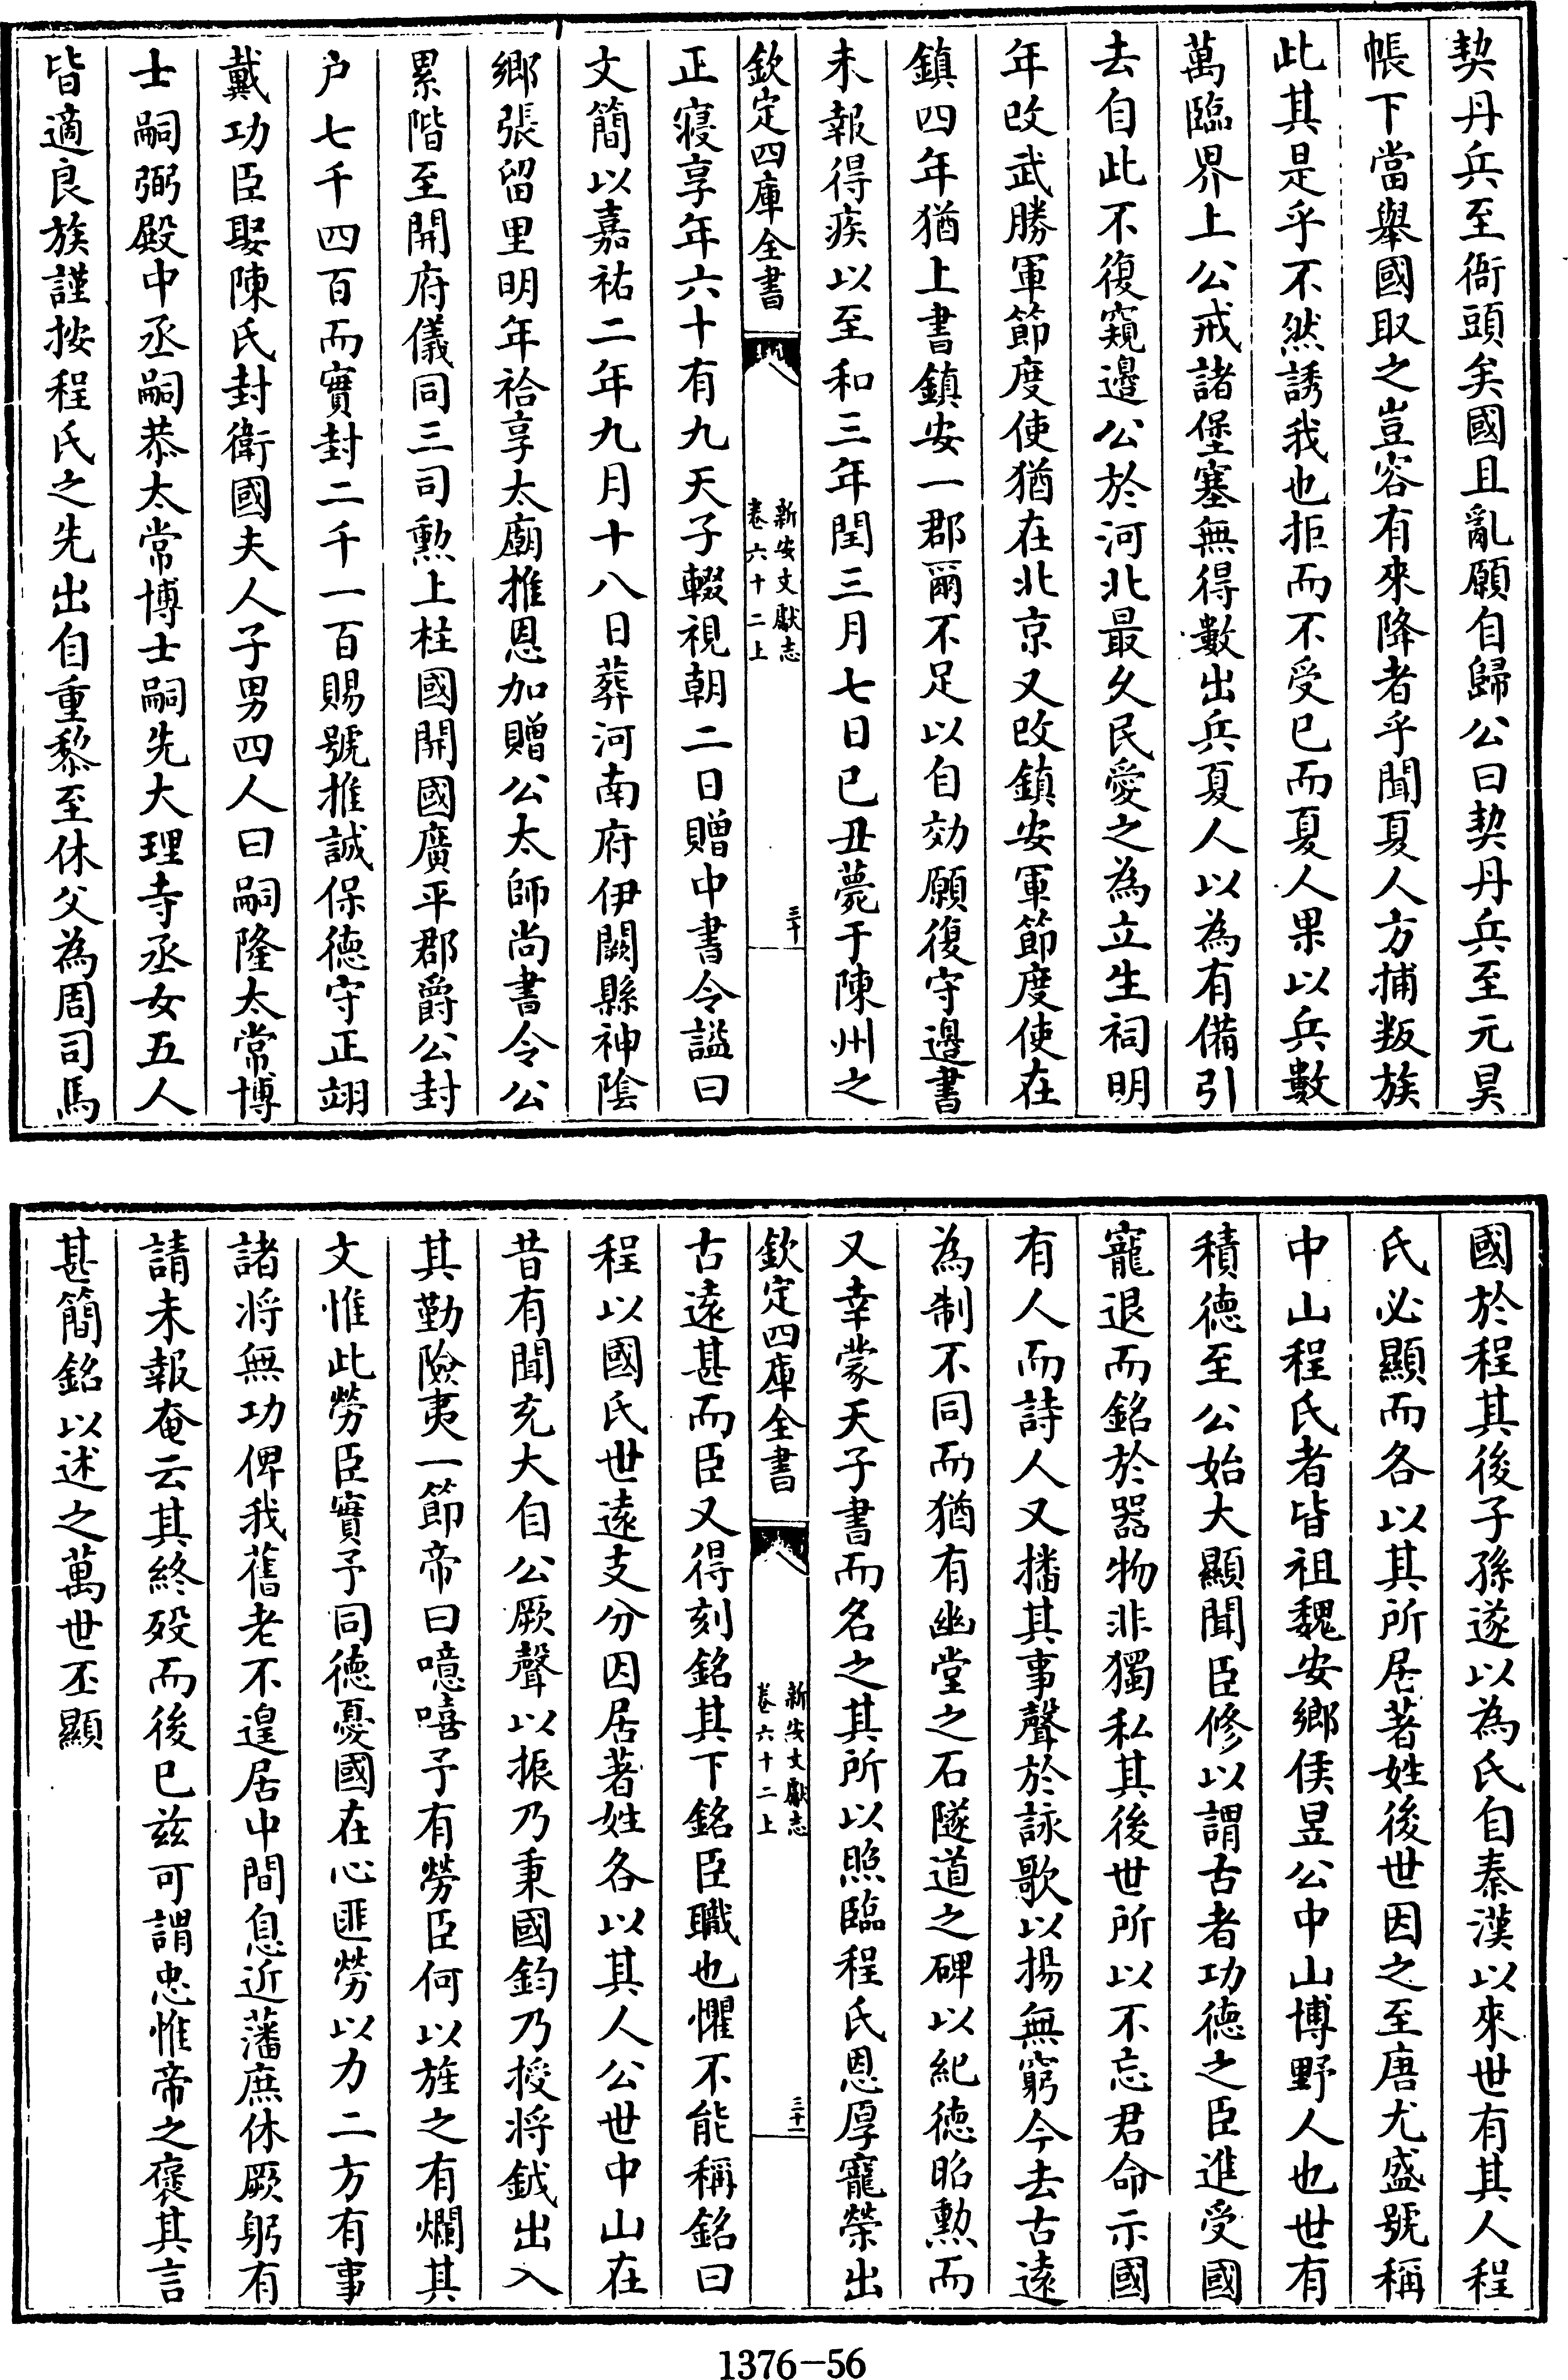 契丹兵至衙頭矣國且亂願自歸公曰契丹兵至元昊
帳下當舉國取之豈容有來降者乎聞夏人方捕叛族
此其是乎不然誘我也拒而不受已而夏人果以兵數
萬臨界上公戒諸堡塞無得數出兵夏人以為有備引
去自此不復窺邊公於河北最久民愛之為立生祠明
年改武勝軍節度使猶在北京又改鎮安軍節度使在
鎮四年猶上書鎮安一郡爾不足以自効願復守邊書
未報得疾以至和三年閏三月七日已丑薨于陳州之
欽定四庫全書
新安文獻志
卷六十二上
三十
正寢享年六十有九天子輟視朝二日贈中書令諡曰
文簡以嘉祐二年九月十八日葬河南府伊闕縣神陰
鄉張留里明年祫享太廟推恩加贈公太師尚書令公
累階至開府儀同三司勲上柱國開國廣平郡爵公封
户七千四百而實封二千一百賜號推誠保德守正翊
戴功臣娶陳氏封衛國夫人子男四人曰嗣隆太常博
士嗣弼殿中丞嗣恭太常博士嗣先大理寺丞女五人
皆適良族謹按程氏之先出自重黎至休父為周司馬
國於程其後子孫遂以為氏自秦漢以來世有其人程
氏必顯而各以其所居著姓後世因之至唐尤盛號稱
中山程氏者皆祖魏安鄉侯昱公中山博野人也世有
積德至公始大顯聞臣修以謂古者功德之臣進受國
寵退而銘於器物非獨私其後世所以不忘君命示國
有人而詩人又播其事聲於詠歌以揚無窮今去古遠
為制不同而猶有幽堂之石隧道之碑以紀德昭勲而
又幸蒙天子書而名之其所以照臨程氏恩厚寵榮出
欽定四庫全書
新安文獻志
卷六十二上
三十一
古遠甚而臣又得刻銘其下銘臣職也懼不能稱銘曰
程以國氏世遠支分因居著姓各以其人公世中山在
昔有聞充大自公厥聲以振乃秉國鈞乃授将鉞出入
其勤險夷一節帝曰噫嘻予有勞臣何以旌之有爛其
文惟此勞臣實予同德憂國在心匪勞以力二方有事
諸将無功俾我舊老不遑居中間息近藩庶休厥躬有
請未報奄云其終殁而後已兹可謂忠惟帝之褒其言
甚簡銘以述之萬世丕顯
1376—56